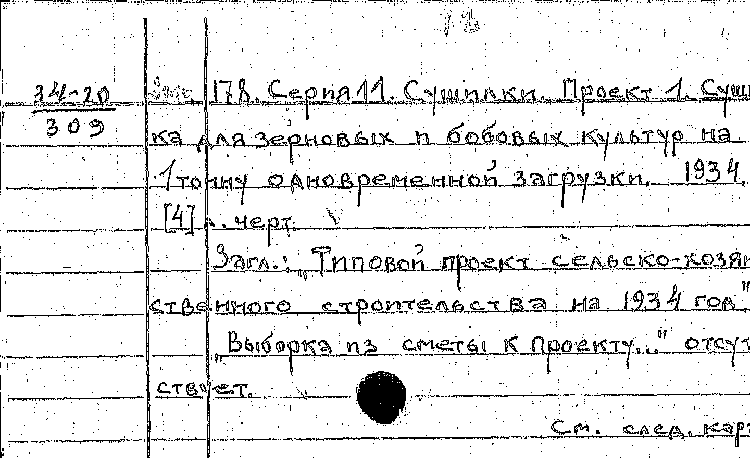 34-20
309
178. Серия 11. Сушилки. Проект 1. Суш
ка для зерновых и бобовых культур на
1 тонну одновременной загрузки. 1934.
[4] л. черт.
Загл.: „Типовой проект сельско-хозяй
ственного строительства на 1934 год"
„Выборка из сметы к проекту..." отсут
ствует.
См. след. карт